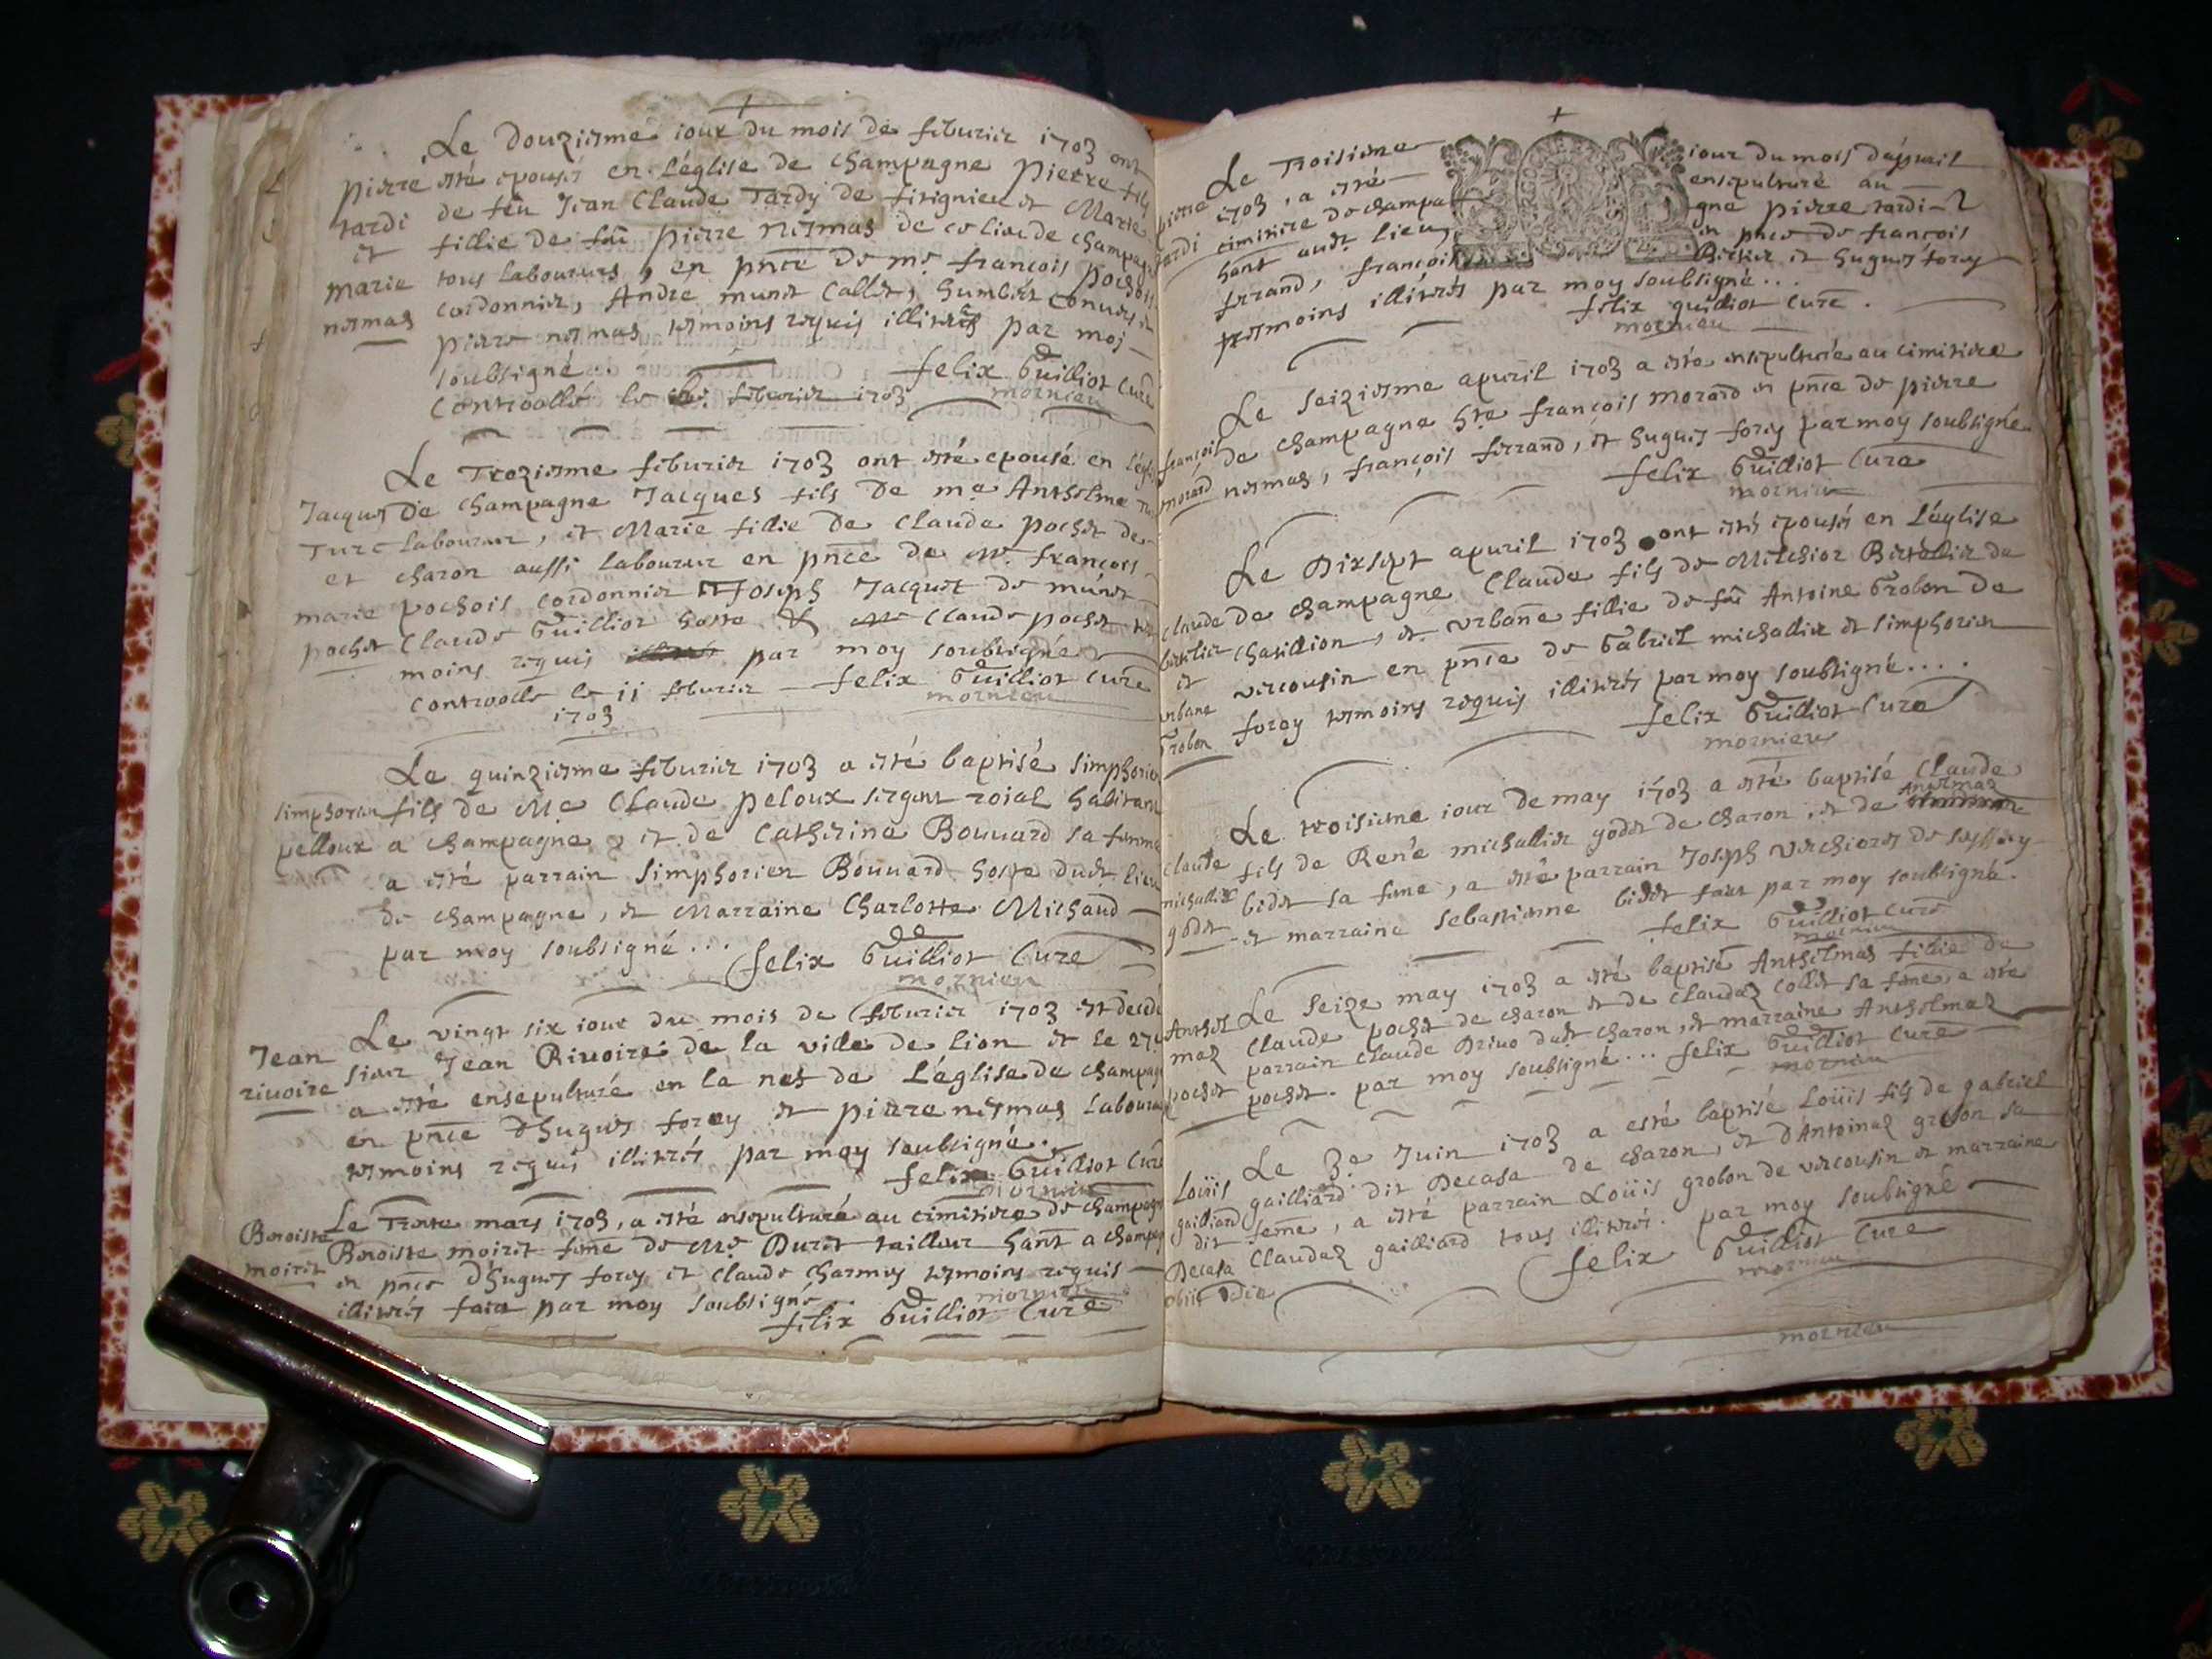 Le Douziesme iour du mois de feburier 1703 ont
pierre esté epousés en L'église de Champagne Pierre fils
tardi de feu Jean Claude Tardy de fitignieu et Marie
et fillie de feu pierre nesmas de ce lieu de Champagne
marie tous laboureurs, en pnce de me françois pochois
nesmas cordonnier, Andre munet Collet, humbert Convers et
pierre nesmas tesmoins requis illiterés par moj
soubsigné .. felix Guilliot Curé
Controollé le feburier 1703 mornieu
Le Treziesme feburier 1703 ont esté epousé en l'église
Jacques De Champagne Jacques fils De me Anthelme
Turc laboureur, et Marie fillie De Claude pochet de
et charon aussi laboureur en pnce de Me françois
marie pochois cordonnier et Joseph Jacquet de munet
pochet Claude Guilliot hoste & Claude pochet tes
moins requis par moy soubsigné
Controolle le 11 feburier felix Guilliot Curé
1703 mornieu
Le quinziesme feburier 1703 a esté baptisé simphorien
simphorien fils de Me Claude peloux sergent roial habitant
pelloux a Champagne, et de Catherine Bouuard sa femme
a esté parrain simphorien Bouuard hoste dudt lieu
de champagne, et Marraine Charlotte Michaud
par moy soubsigné ... felix Guilliot Curé
mornieu
Le vingt six iour du mois de feburier 1703 est decedé
Jean sieur Jean Riuoire de la ville de Lion et le 27e
riuoire a esté ensepulturé en la nef de L'église de Champagne
en pnce d'hugues forey et pierre nesmas laboureurs
tesmoins requis illiterés par moy soubsigné.
felix Guilliot Curé
mornieu
Benoiste Le Trente mars 1703, a esté ensepulturé au cimitiere de champagne
moiret Benoiste moiret feme de Me Duret tailleur hant a champagne
en pnce d'hugues forey et Claude charmey tesmoins requis
illiterés fait par moy soubsigné .. mornieu
felix Guilliot Curé
Le Troisieme iour du mois d'apuril
pierre 1703, a esté ensepulturé au
tardi cimitiere de champagne pierre tardi
hant audt lieu, en pnce de françois
ferrand, françois et hugues forey
tesmoins illiterés par moy soubsigné ...
felix guilliot Curé.
mornieu
Le seiziesme apuril 1703 a esté ensepulturé au cimitiere
françois de champagne hte françois morand en pnce de pierre
morand nesmas, françois ferrand, et hugues forey par moy soubsigné
felix Guilliot Cure
mornieu
Le Dixsept apuril 1703 ont estés epousés en L'église
Claude de champagne Claude fils de Melchior Bertellier de
bertelier chatillion, et urbane fillie de feu Antoine Grobon de
et vercousin en pnce de Gabriel michallier et simphorien
urbane forey tesmoins requis illiterés par moy soubsigné ....
Grobon felix Guilliot Cure
mornieu
Le troisieme iour de may 1703 a esté baptisé Claude
Claude fils de René michallier godet de charon, et de Anthelmaz
michallier bidet sa feme, a esté parrain Joseph verchieres de
godet et marraine sebastienne bidet fait par moy soubsigné.
felix Guilliot Curé
mornieu
Le seize may 1703 a esté baptisé Anthelmaz fillie de
Anthel Claude pochet de charon et de Claudaz Collet sa feme, a esté
maz parrain Claude Driuo dudt charon et marraine Anthelmaz
pochet pochet. par moy soubsigné ... felix Guilliot Cure
mornieu
Le 3e Juin 1703 a esté baptisé Loüis fils de gabriel
Loüis gailliard dit Decasa de charon, et d'Antoinaz grobon sa
gailliard feme, a esté parrain Loüis grobon de vercousin et marraine
dit Claudaz gailliard tous illiterés. par moy soubsigné
Decasa felix Guilliot Cure
obiit mornieu
mornieu